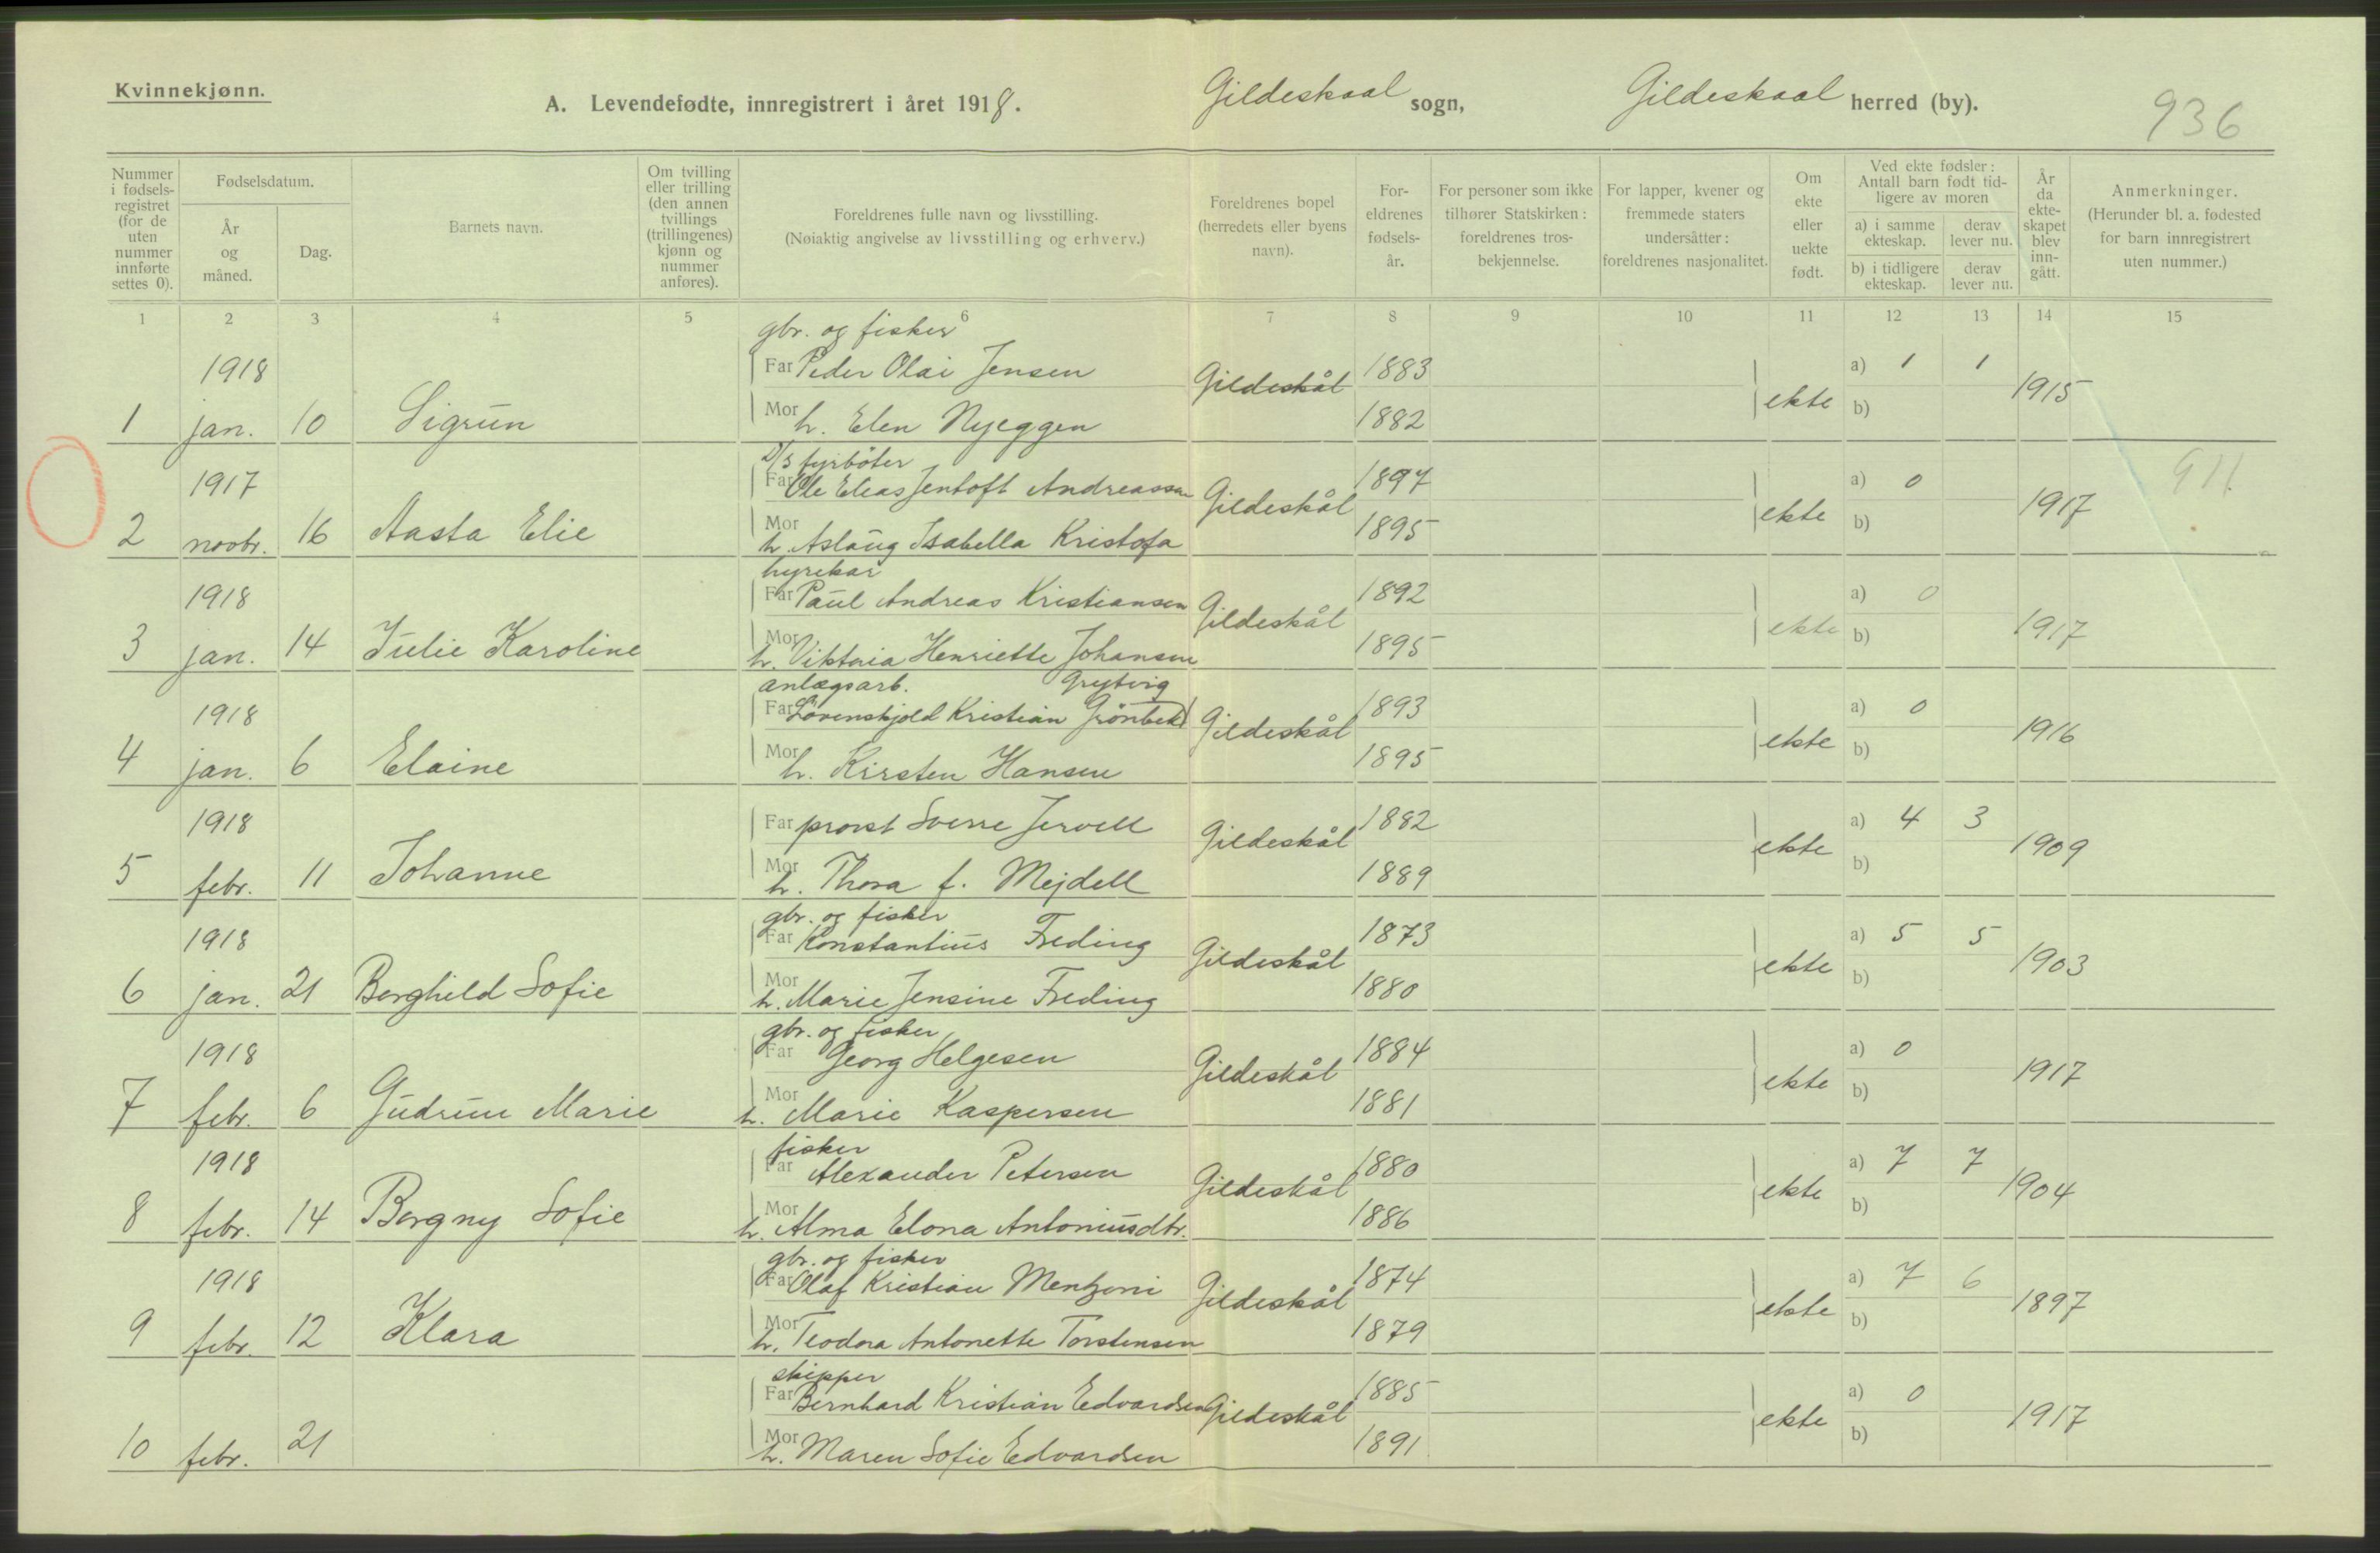 Kvinnekjønn.
A. Levendefødte, innregistrert i året 1918.
Gildeskaal sogn,
Gildeskaal herred (by).
936
Nummer i fødsels-registret (for de uten nummer innførte settes 0).
Fødselsdatum.
År og måned.
Dag.
Barnets navn.
Om tvilling eller trilling (den annen tvillings (trillingenes) kjønn og nummer anføres).
Foreldrenes fulle navn og livsstilling.
(Nøiaktig angivelse av livsstilling og erhverv.)
Foreldrenes bopel (herredets eller byens navn).
For-eldrenes fødsels-år.
For personer som ikke tilhører Statskirken: foreldrenes tros-bekjennelse.
For lapper, kvener og fremmede staters undersåtter: foreldrenes nasjonalitet.
Om ekte eller uekte født.
Ved ekte fødsler: Antall barn født tid-ligere av moren
a) i samme ekteskap.
derav lever nu.
b) i tidligere ekteskap.
derav lever nu.
År da ekte-skapet blev inn-gått.
Anmerkninger.
(Herunder bl. a. fødested for barn innregistrert uten nummer.)
1 2 3 4 5 6 7 8 9 10 11 12 13 14 15
gbr. og fisker
1918 Far Peder Olai Jensen Gildeskål 1883 a) 1 1 1915
1 jan. 10 Sigrun Mor h. Elen Nyeggen 1882 ekte b)
D/s fyrbøter
1917 Far Ole Elias Jentoft Andreassen Gildeskål 1897 a) 0 1917 911
2 novbr. 16 Aasta Elie Mor h. Aslaug Isabella Kristofa 1895 ekte b)
hyrekar
1918 Far Paul Andreas Kristiansen Gildeskål 1892 a) 0 1917
3 jan. 14 Julie Karoline Mor h. Viktoria Henriette Johansen 1895 ekte b)
anlægsarb. Grytvig
1918 Far Løvenskjold Kristian Grønbek Gildeskål 1893 a) 0 1916
4 jan. 6 Elaine Mor h. Kirsten Hansen 1895 ekte b)
1918 Far provst Sverre Jervell Gildeskål 1882 a) 4 3 1909
5 febr. 11 Johanne Mor h. Thora f. Mejdell 1889 ekte b)
gbr. og fisker
1918 Far Konstantius Freding Gildeskål 1873 a) 5 5 1903
6 jan. 21 Borghild Sofie Mor h. Marie Jensine Freding 1880 ekte b)
gbr. og fisker
1918 Far Georg Helgesen Gildeskål 1884 a) 0 1917
7 febr. 6 Gudrun Marie Mor h. Marie Kaspersen 1881 ekte b)
fisker
1918 Far Alexander Petersen Gildeskål 1880 a) 7 7 1904
8 febr. 14 Borgny Sofie Mor h. Alma Elona Antoniusdtr. 1886 ekte b)
gbr. og fisker
1918 Far Olaf Kristian Mentzoni Gildeskål 1874 a) 7 6 1897
9 febr. 12 Klara Mor h. Teodora Antonette Torstensen 1879 ekte b)
skipper
Far Bernhard Kristian Edvardsen Gildeskål 1885 a) 0 1917
10 febr. 21 Mor h. Maren Sofie Edvardsen 1891 ekte b)